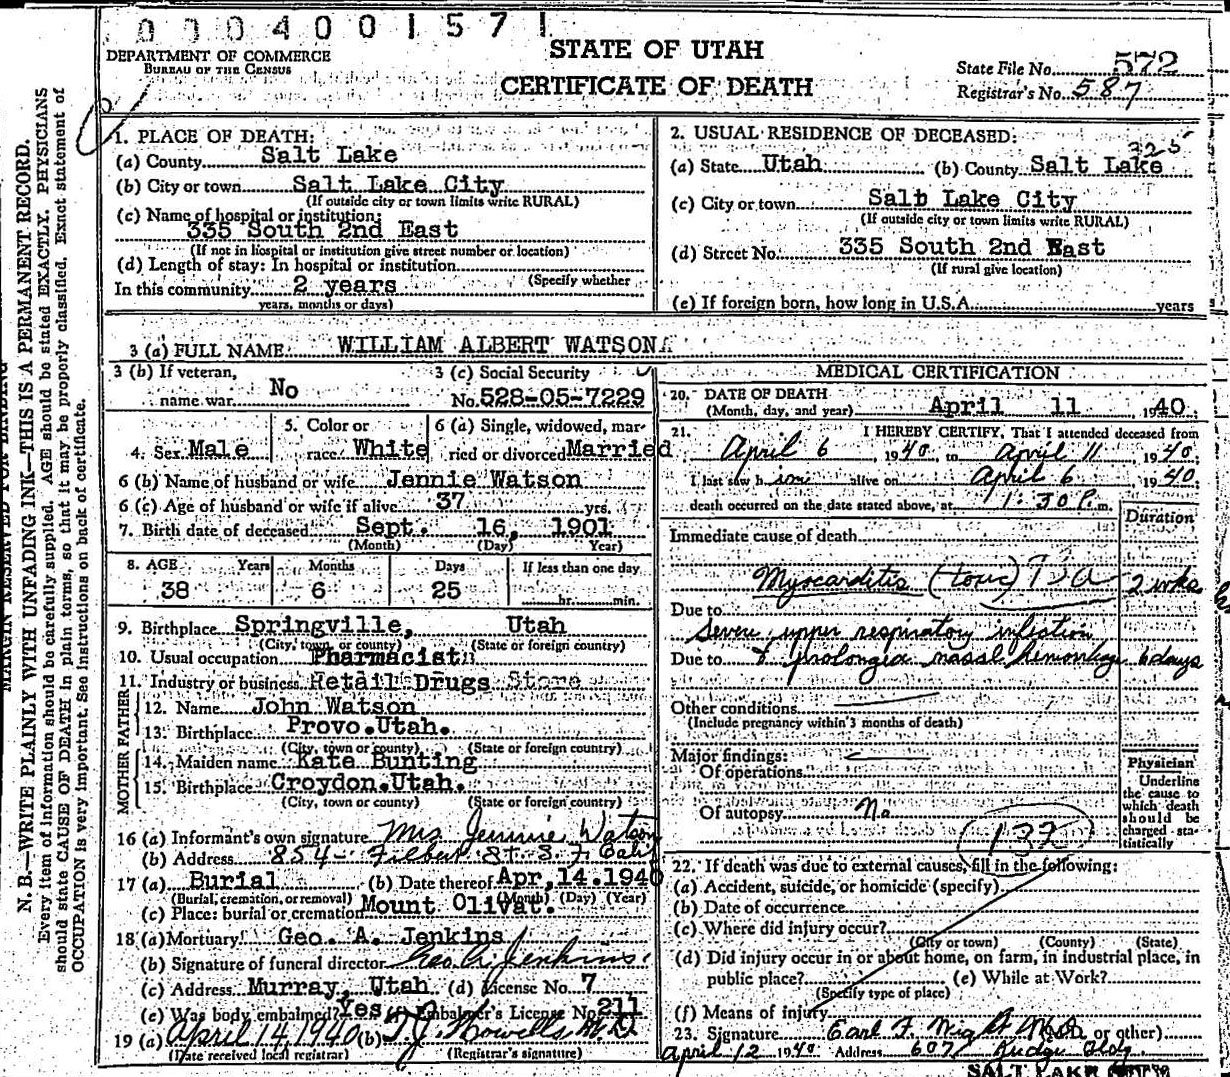 0 0 0 4 0 0 1 5 7 1
DEPARTMENT OF COMMERCE
BUREAU OF THE CENSUS
STATE OF UTAH
CERTIFICATE OF DEATH
State File No. 572
Registrar's No. 587
N. B.—WRITE PLAINLY WITH UNFADING INK—THIS IS A PERMANENT RECORD.
Every item of information should be carefully supplied. AGE should be stated EXACTLY. PHYSICIANS
should state CAUSE OF DEATH in plain terms, so that it may be properly classified. Exact statement of
OCCUPATION is very important. See instructions on back of certificate.
MARGIN RESERVED FOR BINDING
1. PLACE OF DEATH:
(a) County Salt Lake
(b) City or town Salt Lake City
(If outside city or town limits write RURAL)
(c) Name of hospital or institution:
335 South 2nd East
(If not in hospital or institution give street number or location)
(d) Length of stay: In hospital or institution
(Specify whether
In this community 2 years
years, months or days)
2. USUAL RESIDENCE OF DECEASED:
325
(a) State Utah (b) County Salt Lake
(c) City or town Salt Lake City
(If outside city or town limits write RURAL)
(d) Street No. 335 South 2nd East
(If rural give location)
(e) If foreign born, how long in U.S.A. years
3 (a) FULL NAME WILLIAM ALBERT WATSON
3 (b) If veteran, name war No
3 (c) Social Security No. 528-05-7229
4. Sex Male
5. Color or race White
6 (a) Single, widowed, married or divorced Married
6 (b) Name of husband or wife Jennie Watson
6 (c) Age of husband or wife if alive 37 yrs.
7. Birth date of deceased Sept. 16, 1901
(Month) (Day) Year)
8. AGE Years Months Days If less than one day
38 6 25 hr. min.
9. Birthplace Springville, Utah
(City, town, or county) (State or foreign country)
10. Usual occupation Pharmacist
11. Industry or business Retail Drugs Store
FATHER
12. Name John Watson
13. Birthplace Provo.Utah.
(City, town or county) (State or foreign country)
MOTHER
14. Maiden name Kate Bunting
15. Birthplace Croydon.Utah.
(City, town or county) (State or foreign country)
16 (a) Informant's own signature Mrs Jennie Watson
(b) Address 854- Filbert St. S. F. Calif
17 (a) Burial (b) Date thereof Apr, 14.1940
(Burial, cremation, or removal) (Month) (Day) (Year)
(c) Place: burial or cremation Mount Olivat.
18 (a) Mortuary Geo. A. Jenkins
(b) Signature of funeral director Geo. A. Jenkins
(c) Address Murray, Utah (d) License No. 7
(e) Was body embalmed? Yes (f) Embalmer's License No. 211
19 (a) April 14, 1940 (b) T. J. Howells M.D.
(Date received local registrar) (Registrar's signature)
MEDICAL CERTIFICATION
20. DATE OF DEATH
(Month, day, and year) April 11, 1940
21. I HEREBY CERTIFY, That I attended deceased from
April 6 1940, to April 11 1940.
I last saw h im alive on April 6 1940.
death occurred on the date stated above, at 1:30 P. m.
Duration
Immediate cause of death
Myocarditis (toxic) 2 wks
Due to
Severe upper respiratory infection
Due to & prolonged nasal hemorrhage 6 days
Other conditions
(Include pregnancy within 3 months of death)
Major findings:
Of operations
Of autopsy No
132
Physician
Underline
the cause to
which death
should be
charged sta-
tistically
22. If death was due to external causes, fill in the following:
(a) Accident, suicide, or homicide (specify)
(b) Date of occurrence
(c) Where did injury occur?
(City or town) (County) (State)
(d) Did injury occur in or about home, on farm, in industrial place, in
public place? (e) While at Work?
(Specify type of place)
(f) Means of injury
23. Signature Earl F. Wight M.D. or other)
April 12 1940 Address 607 Judge Bldg.
SALT LAKE